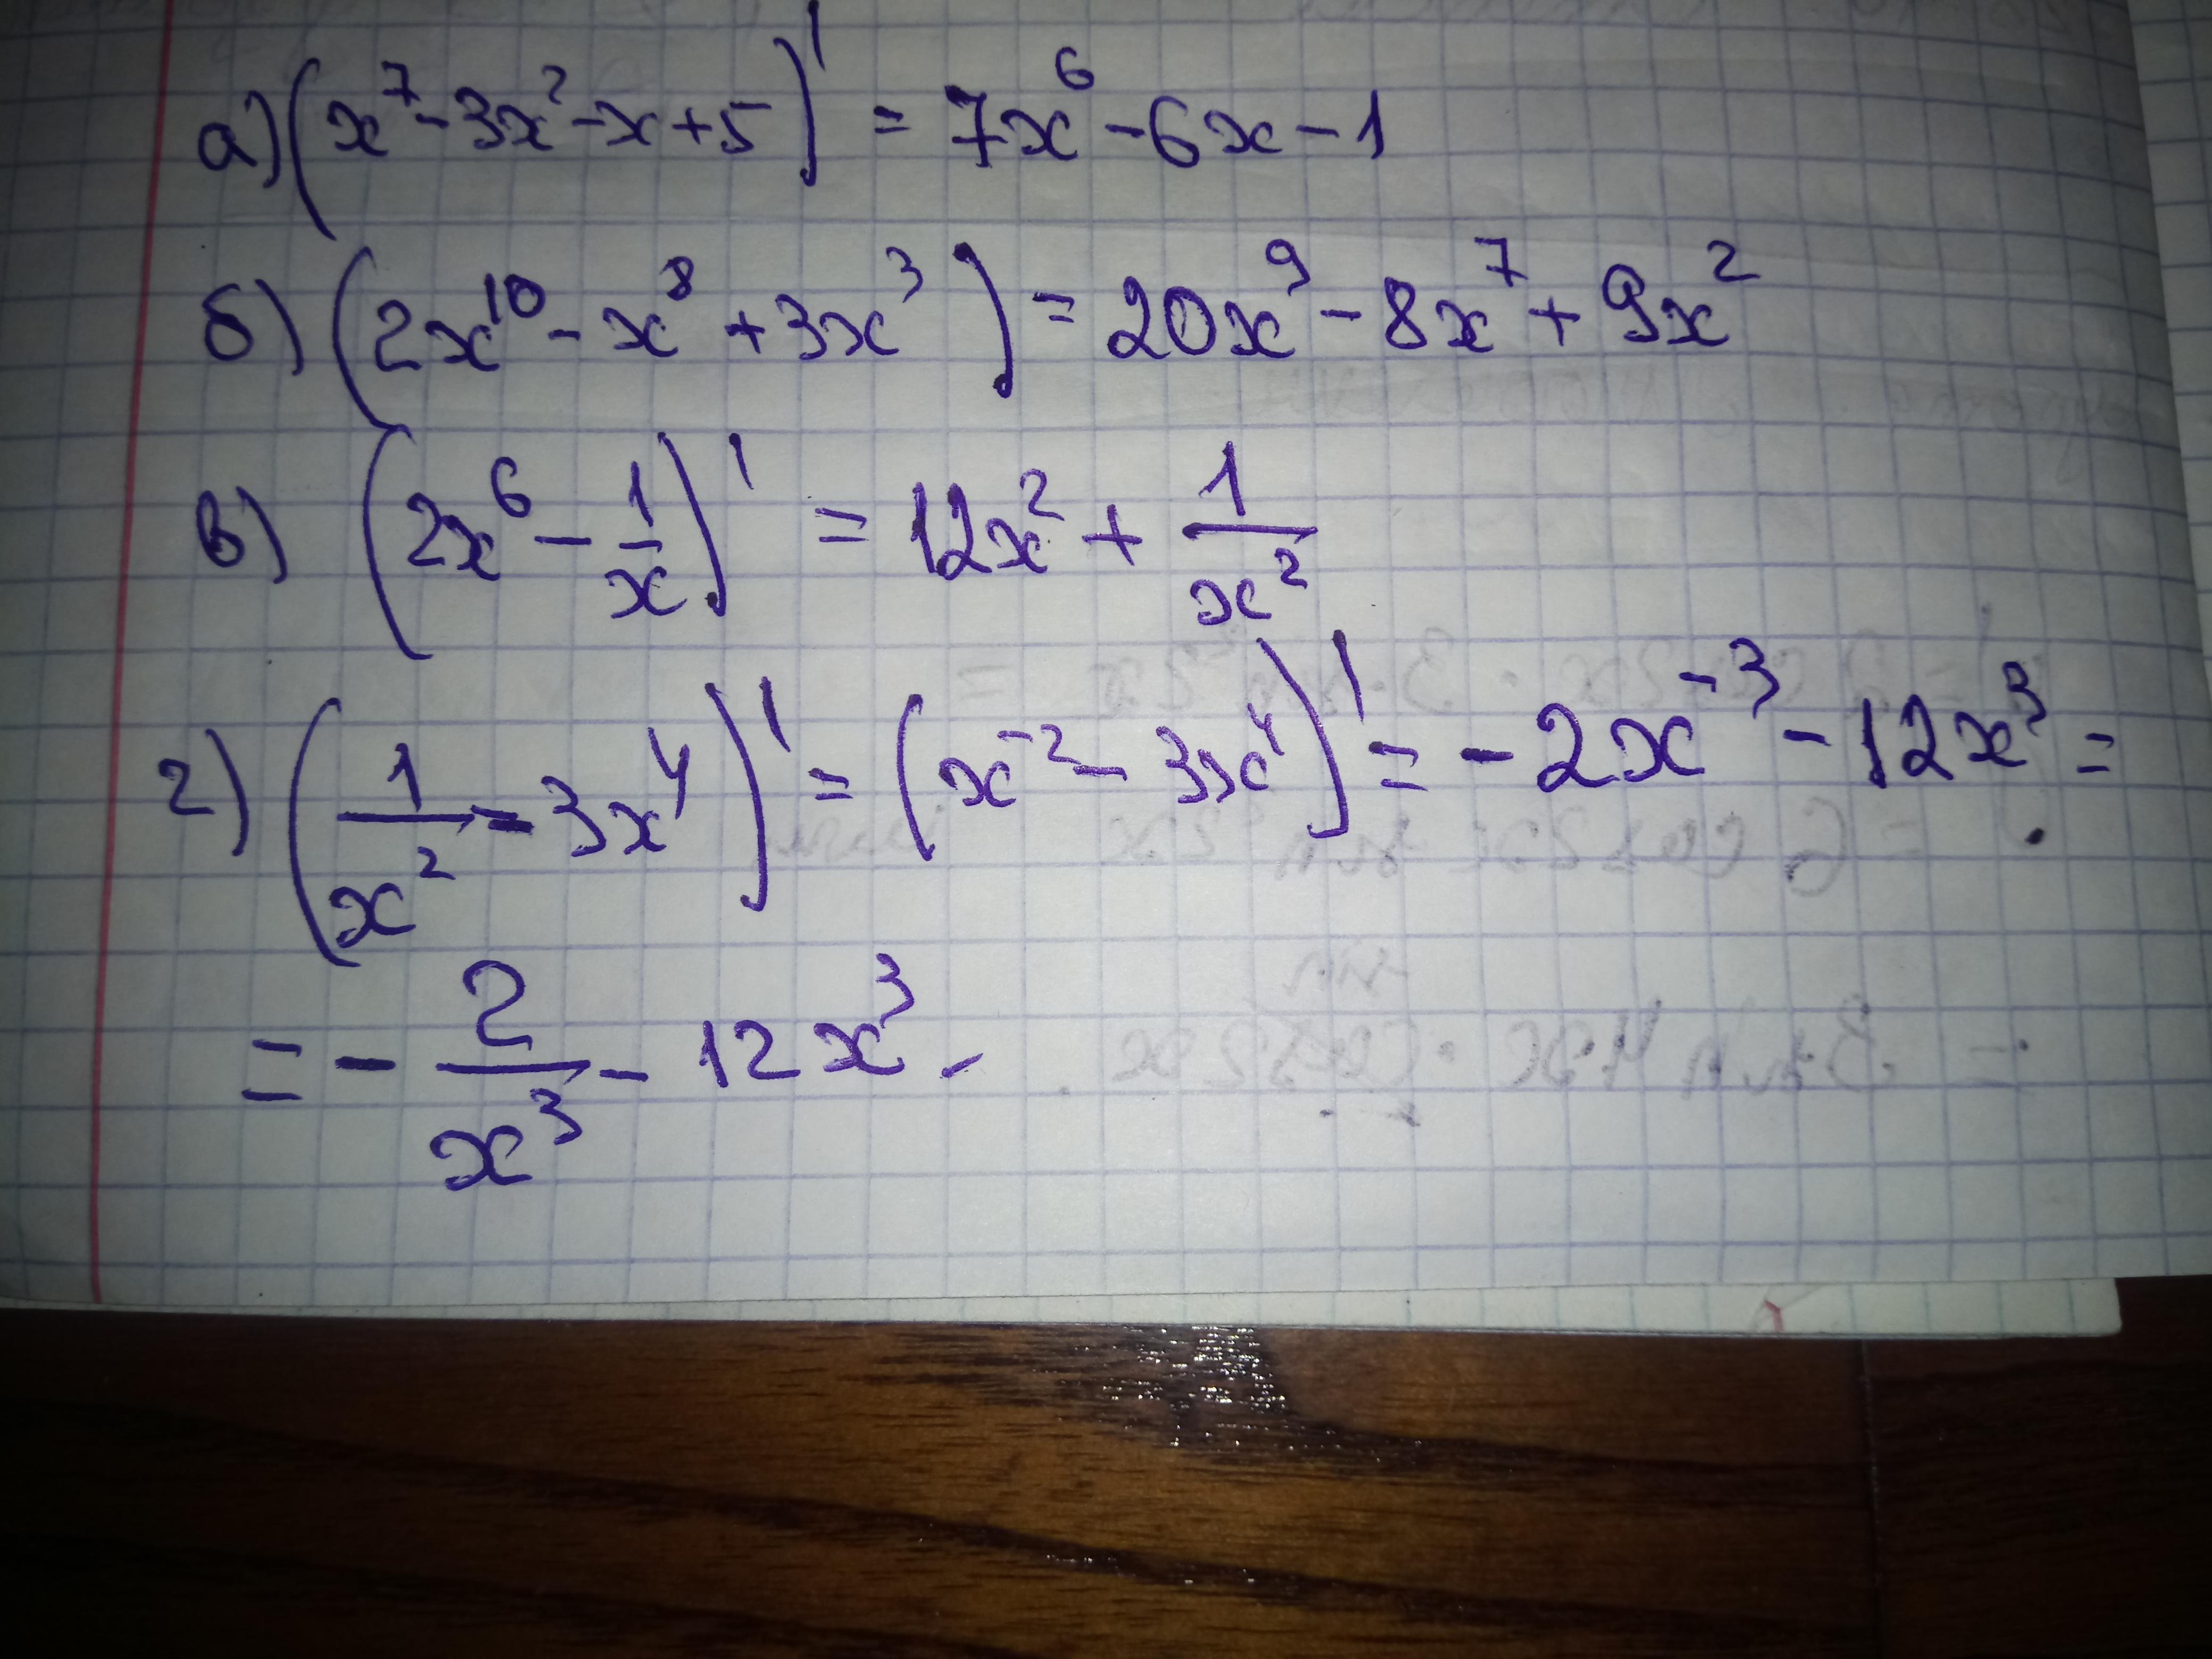 а) (x⁷ - 3x² - x + 5)' = 7x⁶ - 6x - 1
б) (2x¹⁰ - x⁸ + 3x³) = 20x⁹ - 8x⁷ + 9x²
в) (2x⁶ - 1/x)' = 12x² + 1/x²
г) (1/x² - 3x⁴)' = (x⁻² - 3x⁴)' = -2x⁻³ - 12x³ =
= - 2/x³ - 12x³ -